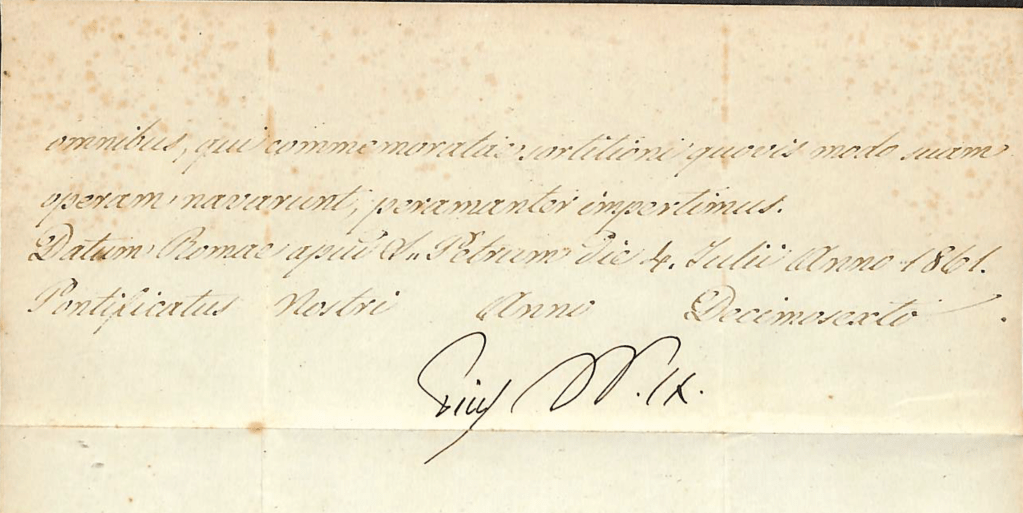 omnibus, qui commemoratae sortitioni quovis modo suam
operam navarunt, peramanter impertimus.
Datum Romae apud S. Petrum die 4. Julii Anno 1861.
Pontificatus Nostri Anno Decimosexto.
Pius PP. IX.